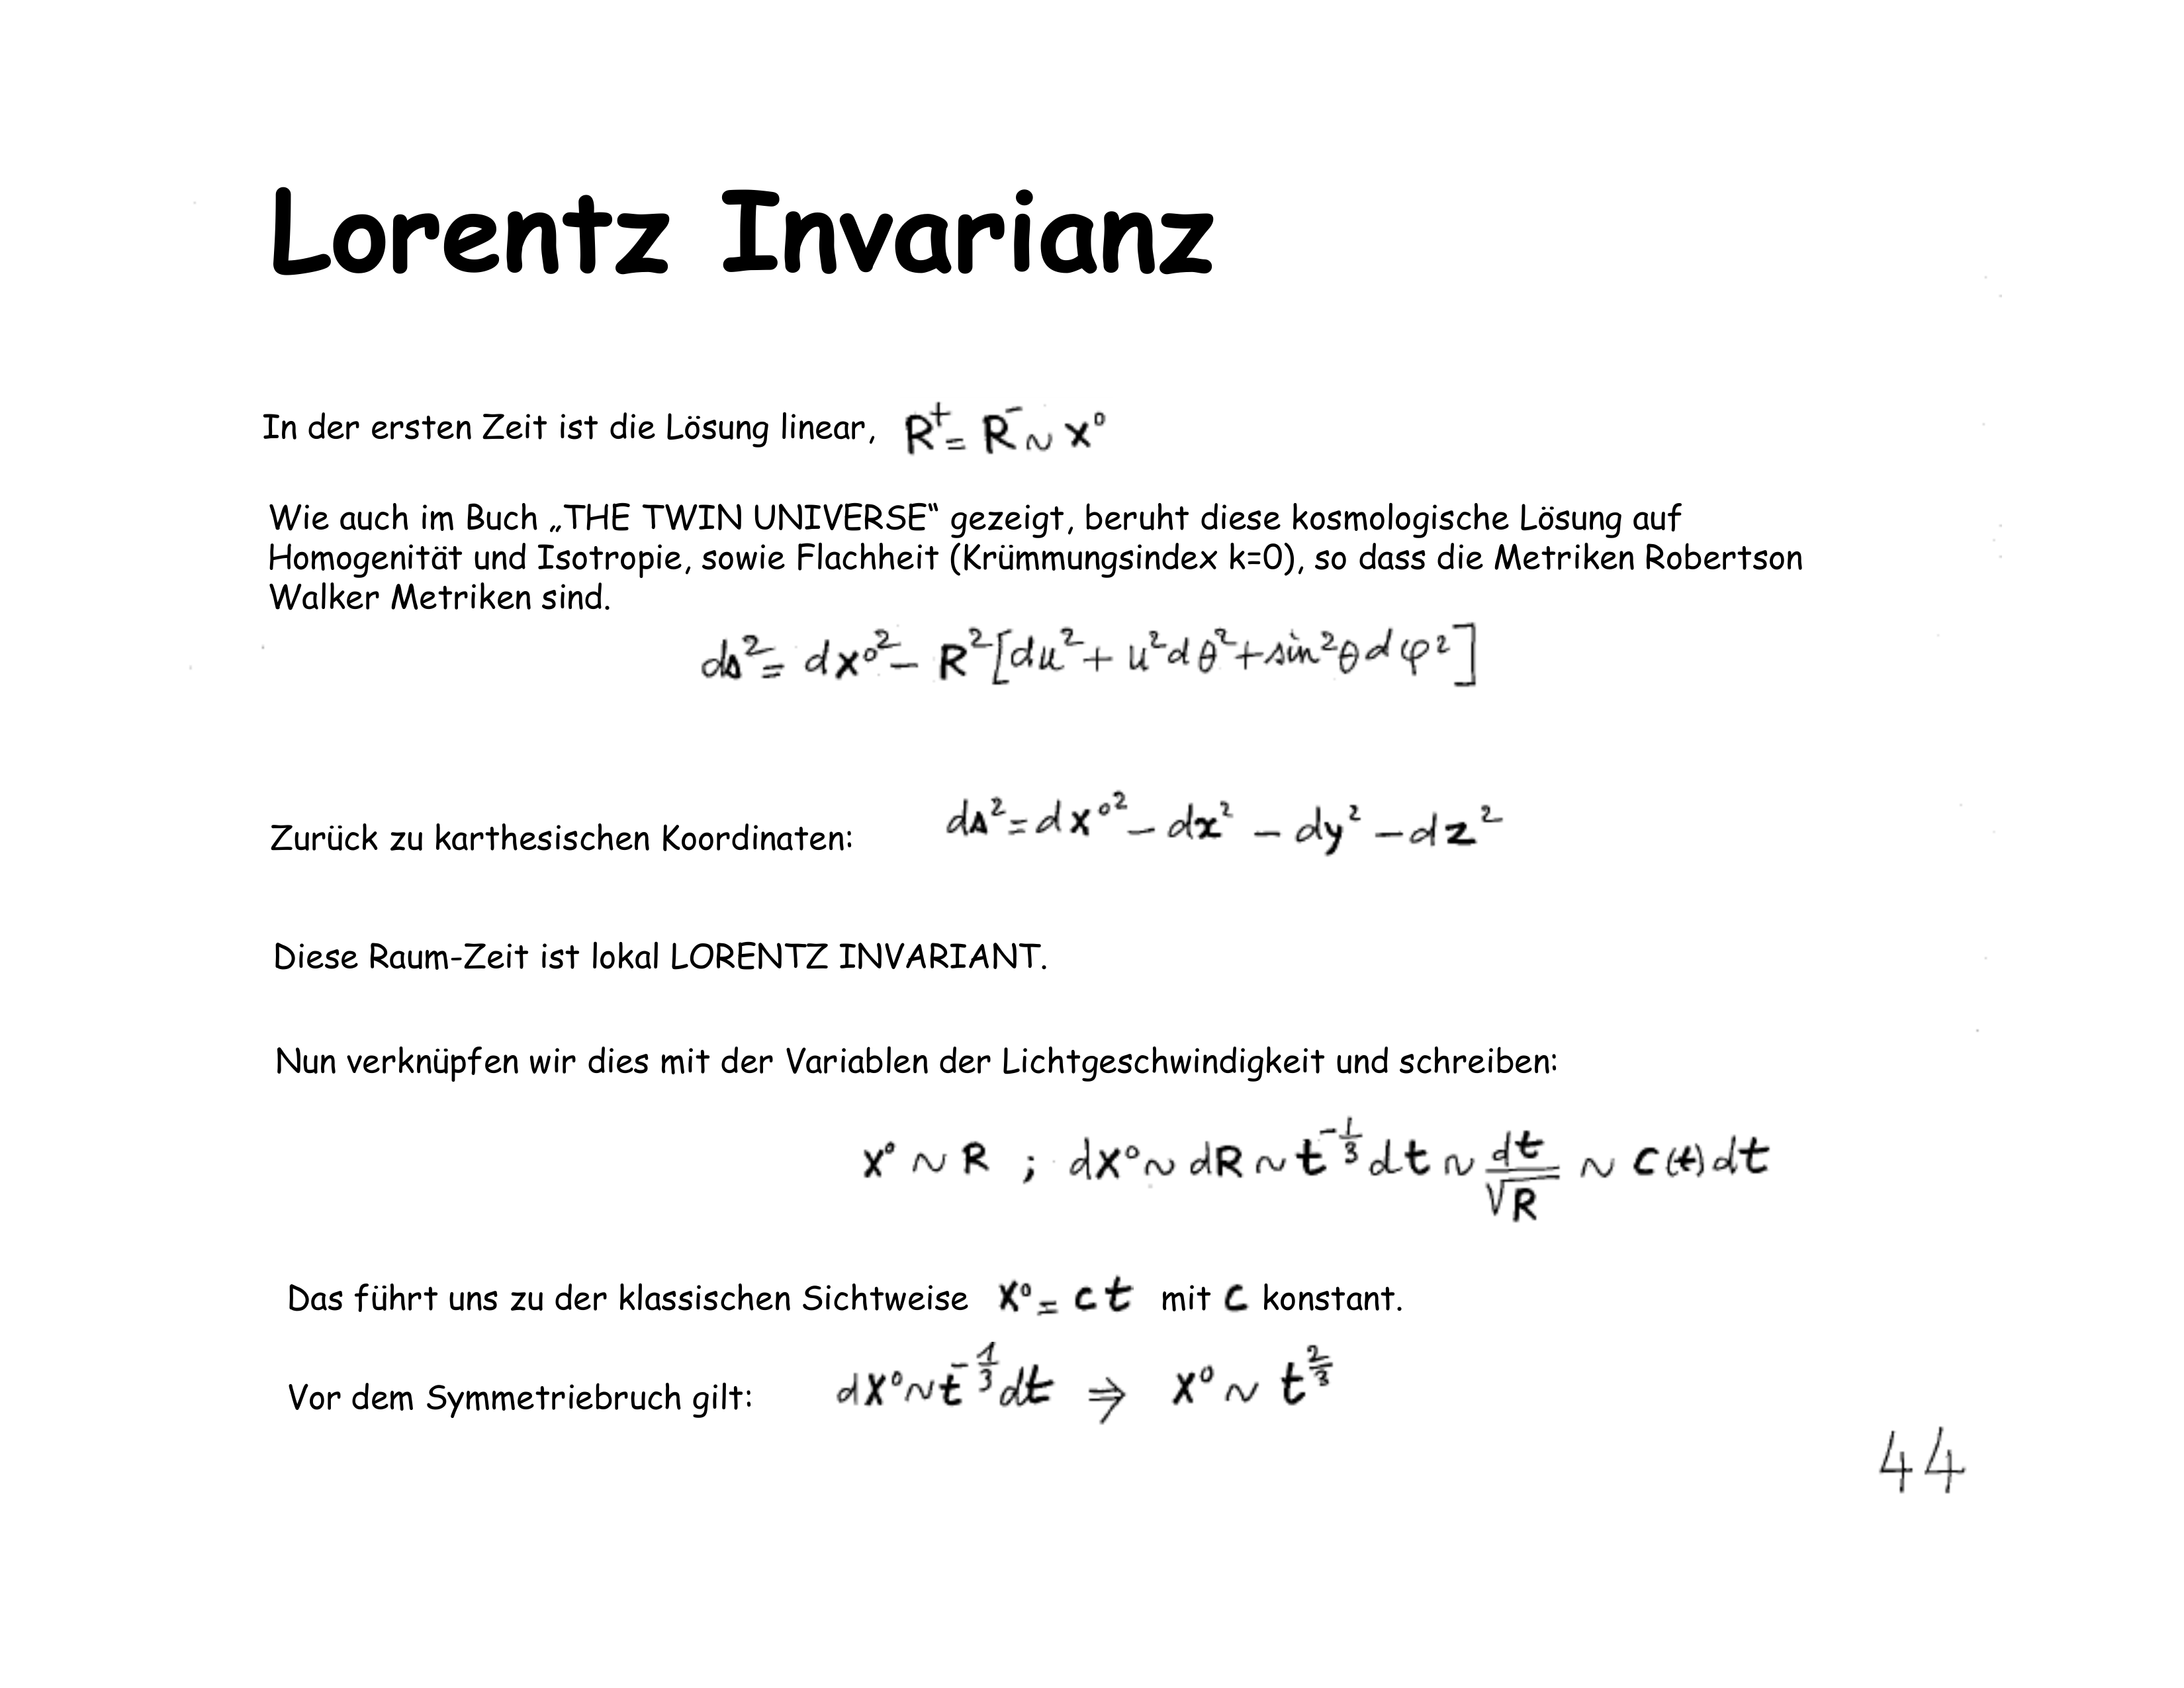 Lorentz Invarianz
In der ersten Zeit ist die Lösung linear, R⁺ = R⁻ ~ x⁰
Wie auch im Buch „THE TWIN UNIVERSE“ gezeigt, beruht diese kosmologische Lösung auf
Homogenität und Isotropie, sowie Flachheit (Krümmungsindex k=0), so dass die Metriken Robertson
Walker Metriken sind.
ds² = dx⁰² – R² [du² + u² dθ² + sin²θ dφ²]
Zurück zu karthesischen Koordinaten: ds² = dx⁰² – dx² – dy² – dz²
Diese Raum-Zeit ist lokal LORENTZ INVARIANT.
Nun verknüpfen wir dies mit der Variablen der Lichtgeschwindigkeit und schreiben:
x⁰ ~ R ; dx⁰ ~ dR ~ t^(-1/3) dt ~ dt/√R ~ c(t) dt
Das führt uns zu der klassischen Sichtweise x⁰ = ct mit c konstant.
Vor dem Symmetriebruch gilt: dx⁰ ~ t^(-1/3) dt ⇒ x⁰ ~ t^(2/3)
44